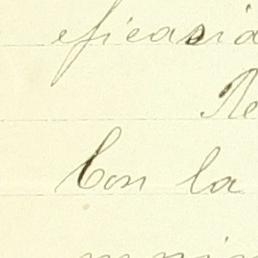 eficasia
Re
Con la